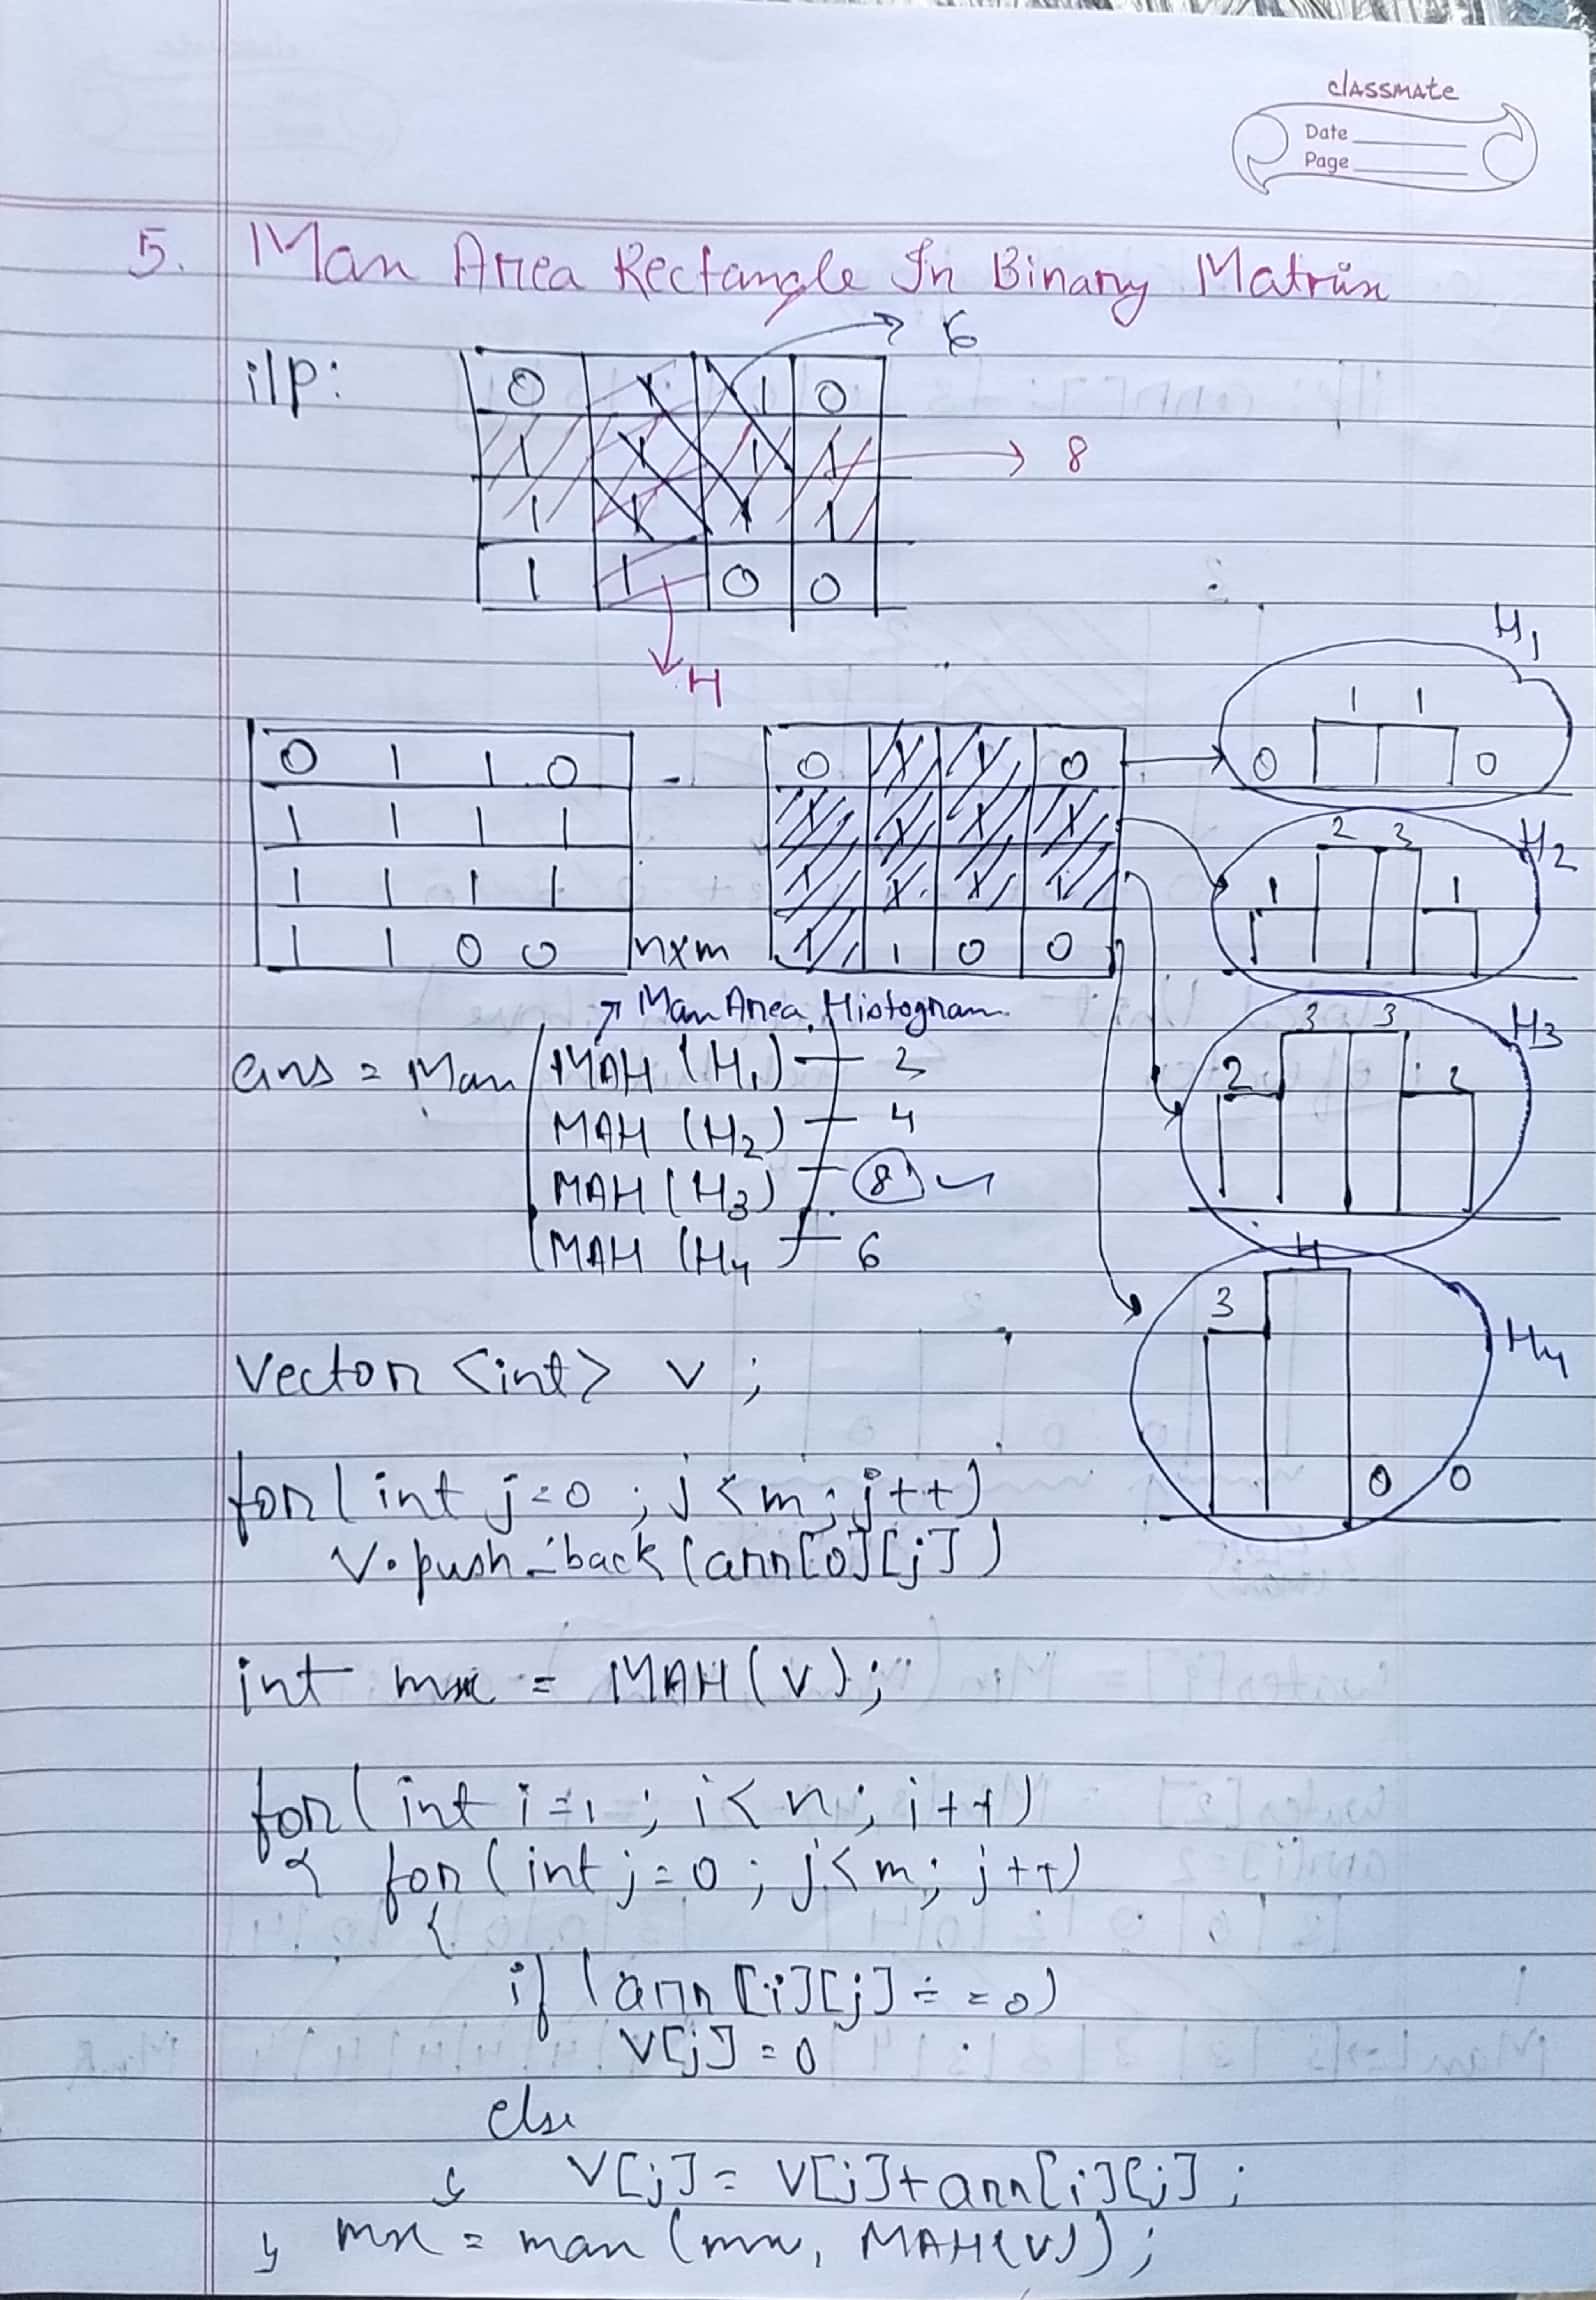 classmate
Date
Page
5. Max Area Rectangle In Binary Matrix
i/p:
0 1 1 0 → 6
1 1 1 1 → 8
1 1 1 1
1 1 0 0
4
0 1 1 0
1 1 1 1
1 1 1 1
1 1 0 0 nxm
0 1 1 0
1 1 1 1
1 1 1 1
1 1 0 0
H1
0 1 1 0
H2
1 2 2 1
H3
2 3 3 2
H4
3 4 0 0
Max Area Histogram
ans = Max (MAH (H1) — 2
MAH (H2) — 4
MAH (H3) — 8
MAH (H4) — 6
Vector <int> v ;
for( int j=0 ; j<m ; j++)
v.push_back (arr[0][j])
int mx = MAH(v);
for( int i=1 ; i<n ; i++)
{ for (int j=0 ; j<m ; j++)
{
if (arr[i][j] == 0)
v[j] = 0
else
} v[j] = v[j]+arr[i][j];
} mx = max (mx, MAH(v));